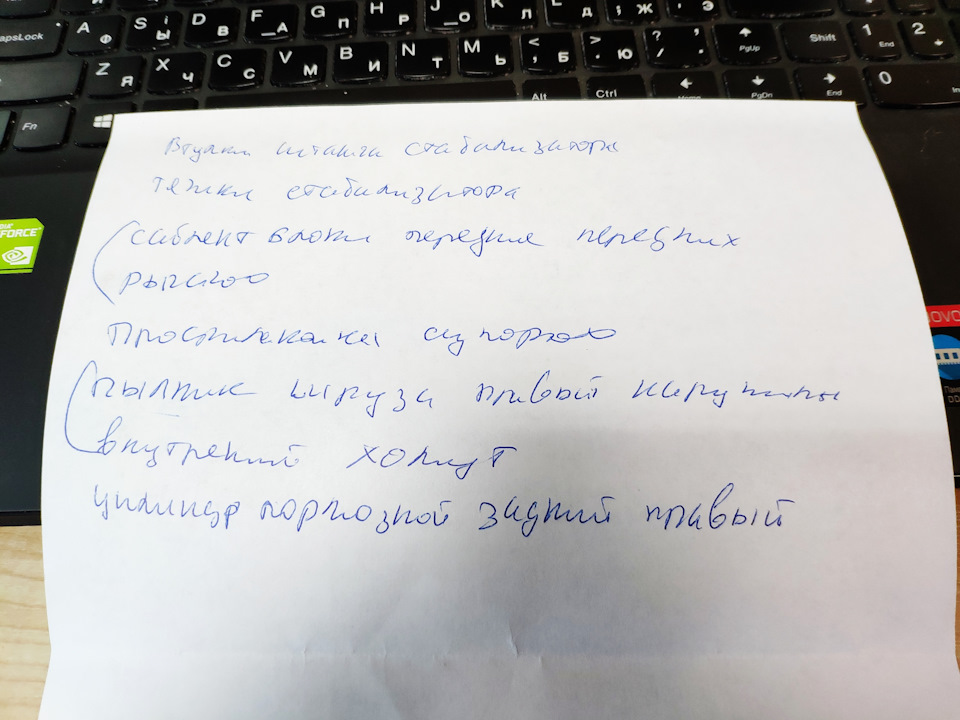 CapsLock A Ф S Ы D В F А G П H Р J О K Л L Д ; Ж Э Shift 1 End 2
Z Я X Ч C С V М B И N Т M Ь < , Б > . Ю ? / PgUp
Fn Alt Ctrl Home PgDn End 0
FORCE
Втулки штанга стабилизатора
тяжки стабилизатора
сайлент блоки передние передних
рычагов
суппорта
пыльник шруза правый наружный
внутрений хомут
цилиндр тормозной задний правый